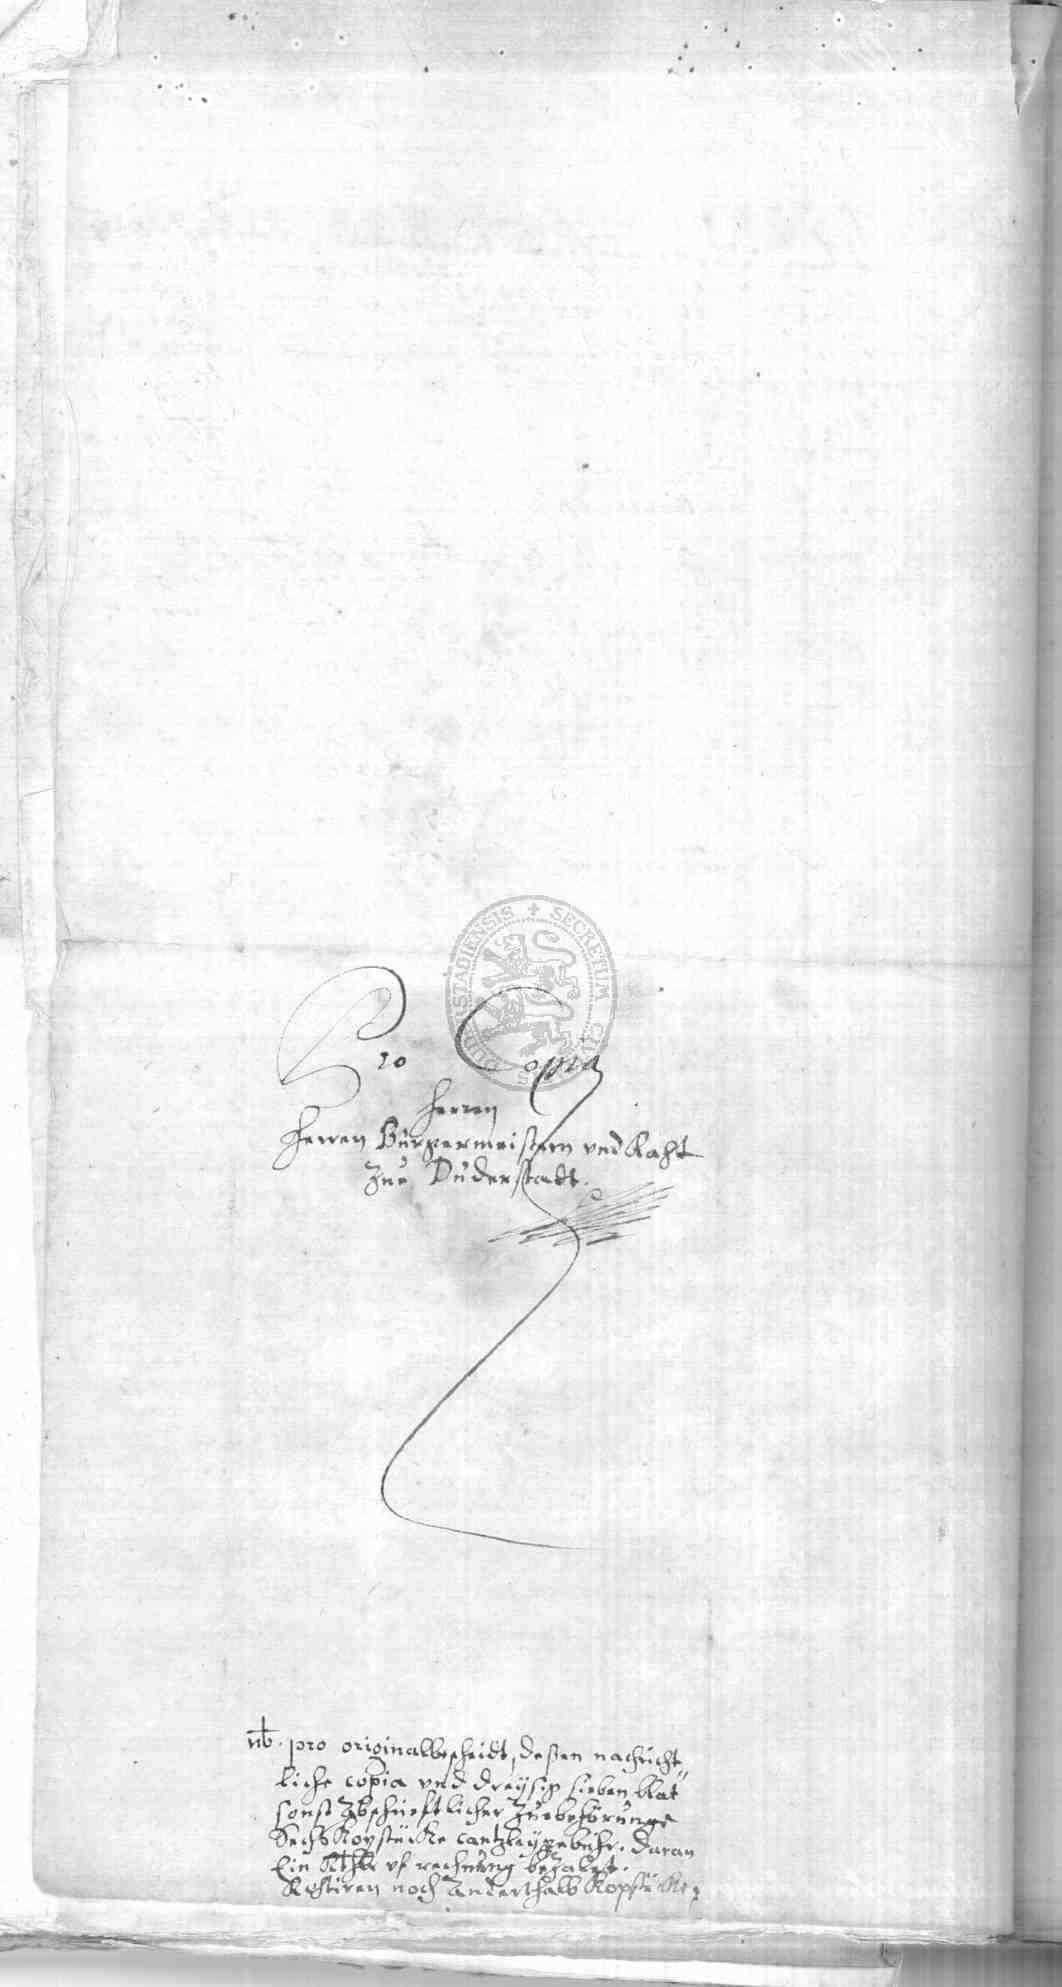 SECRETUM CI
DUDERSTADIENSIS
Pro Copia
Herren
Herren Bürgermeistern vnd Raht
Zue Duderstadt.
nb. pro originalbescheidt, deßen nachricht-
liche copia vnd dreÿsig sieben blat
sonst Abschrieftlicher Zuebehörunge
Sechs Kopstücke cantzleÿgebühr. daran
Ein Rthlr vf rechnung bezahlet.
Restiren noch Anderthalb Kopstücke